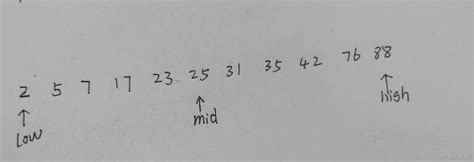 2 5 7 17 23 25 31 35 42 76 88
low mid high